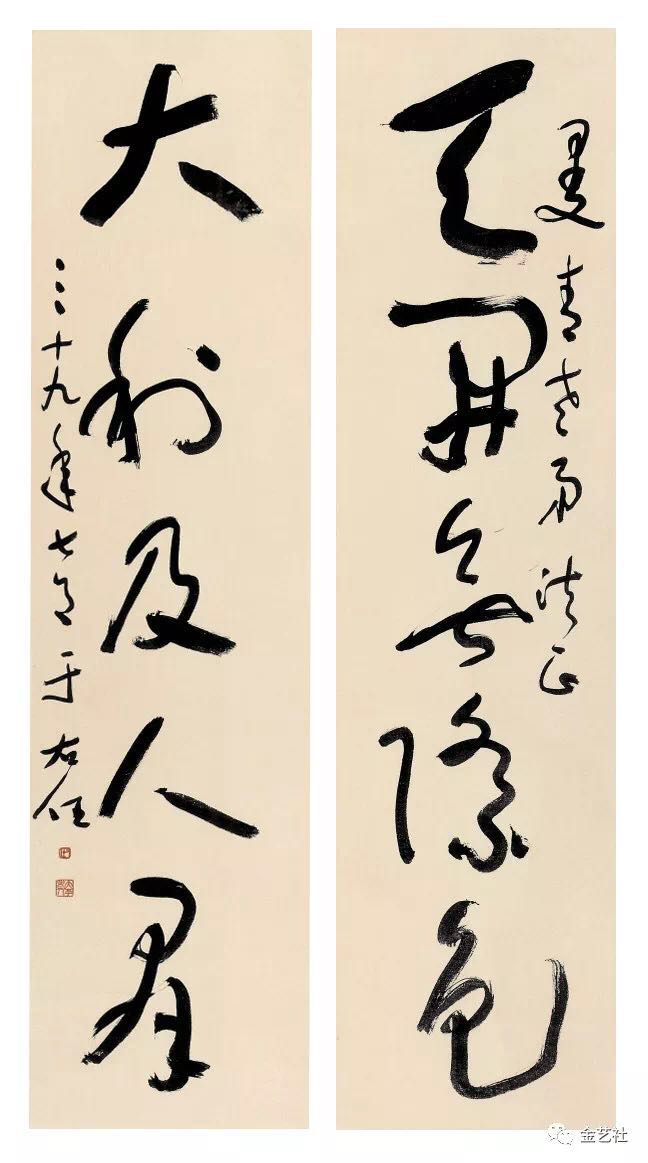 曼青老法正
天開無際色
大利及人羣
三十九年七月于右任
金艺社